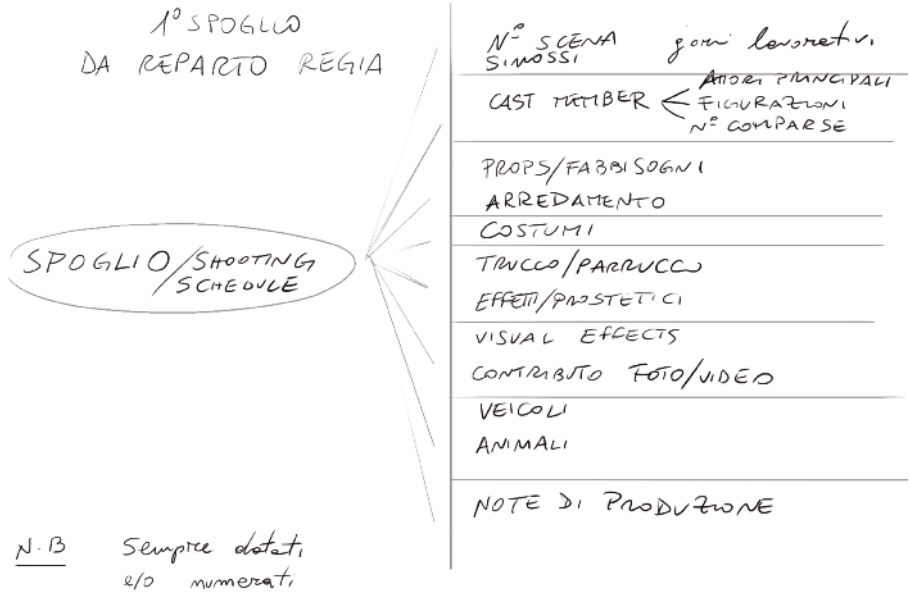 1º SPOGLIO
DA REPARTO REGIA
SPOGLIO/SHOOTING
SCHEDULE
N.B Sempre datati
e/o numerati
Nº SCENA giorni lavorativi
SINOSSI
CAST MEMBER
ATTORI PRINCIPALI
FIGURAZIONI
Nº COMPARSE
PROPS/FABBISOGNI
ARREDAMENTO
COSTUMI
TRUCCO/PARRUCCO
EFFETTI/PROSTETICI
VISUAL EFFECTS
CONTRIBUTO FOTO/VIDEO
VEICOLI
ANIMALI
NOTE DI PRODUZIONE